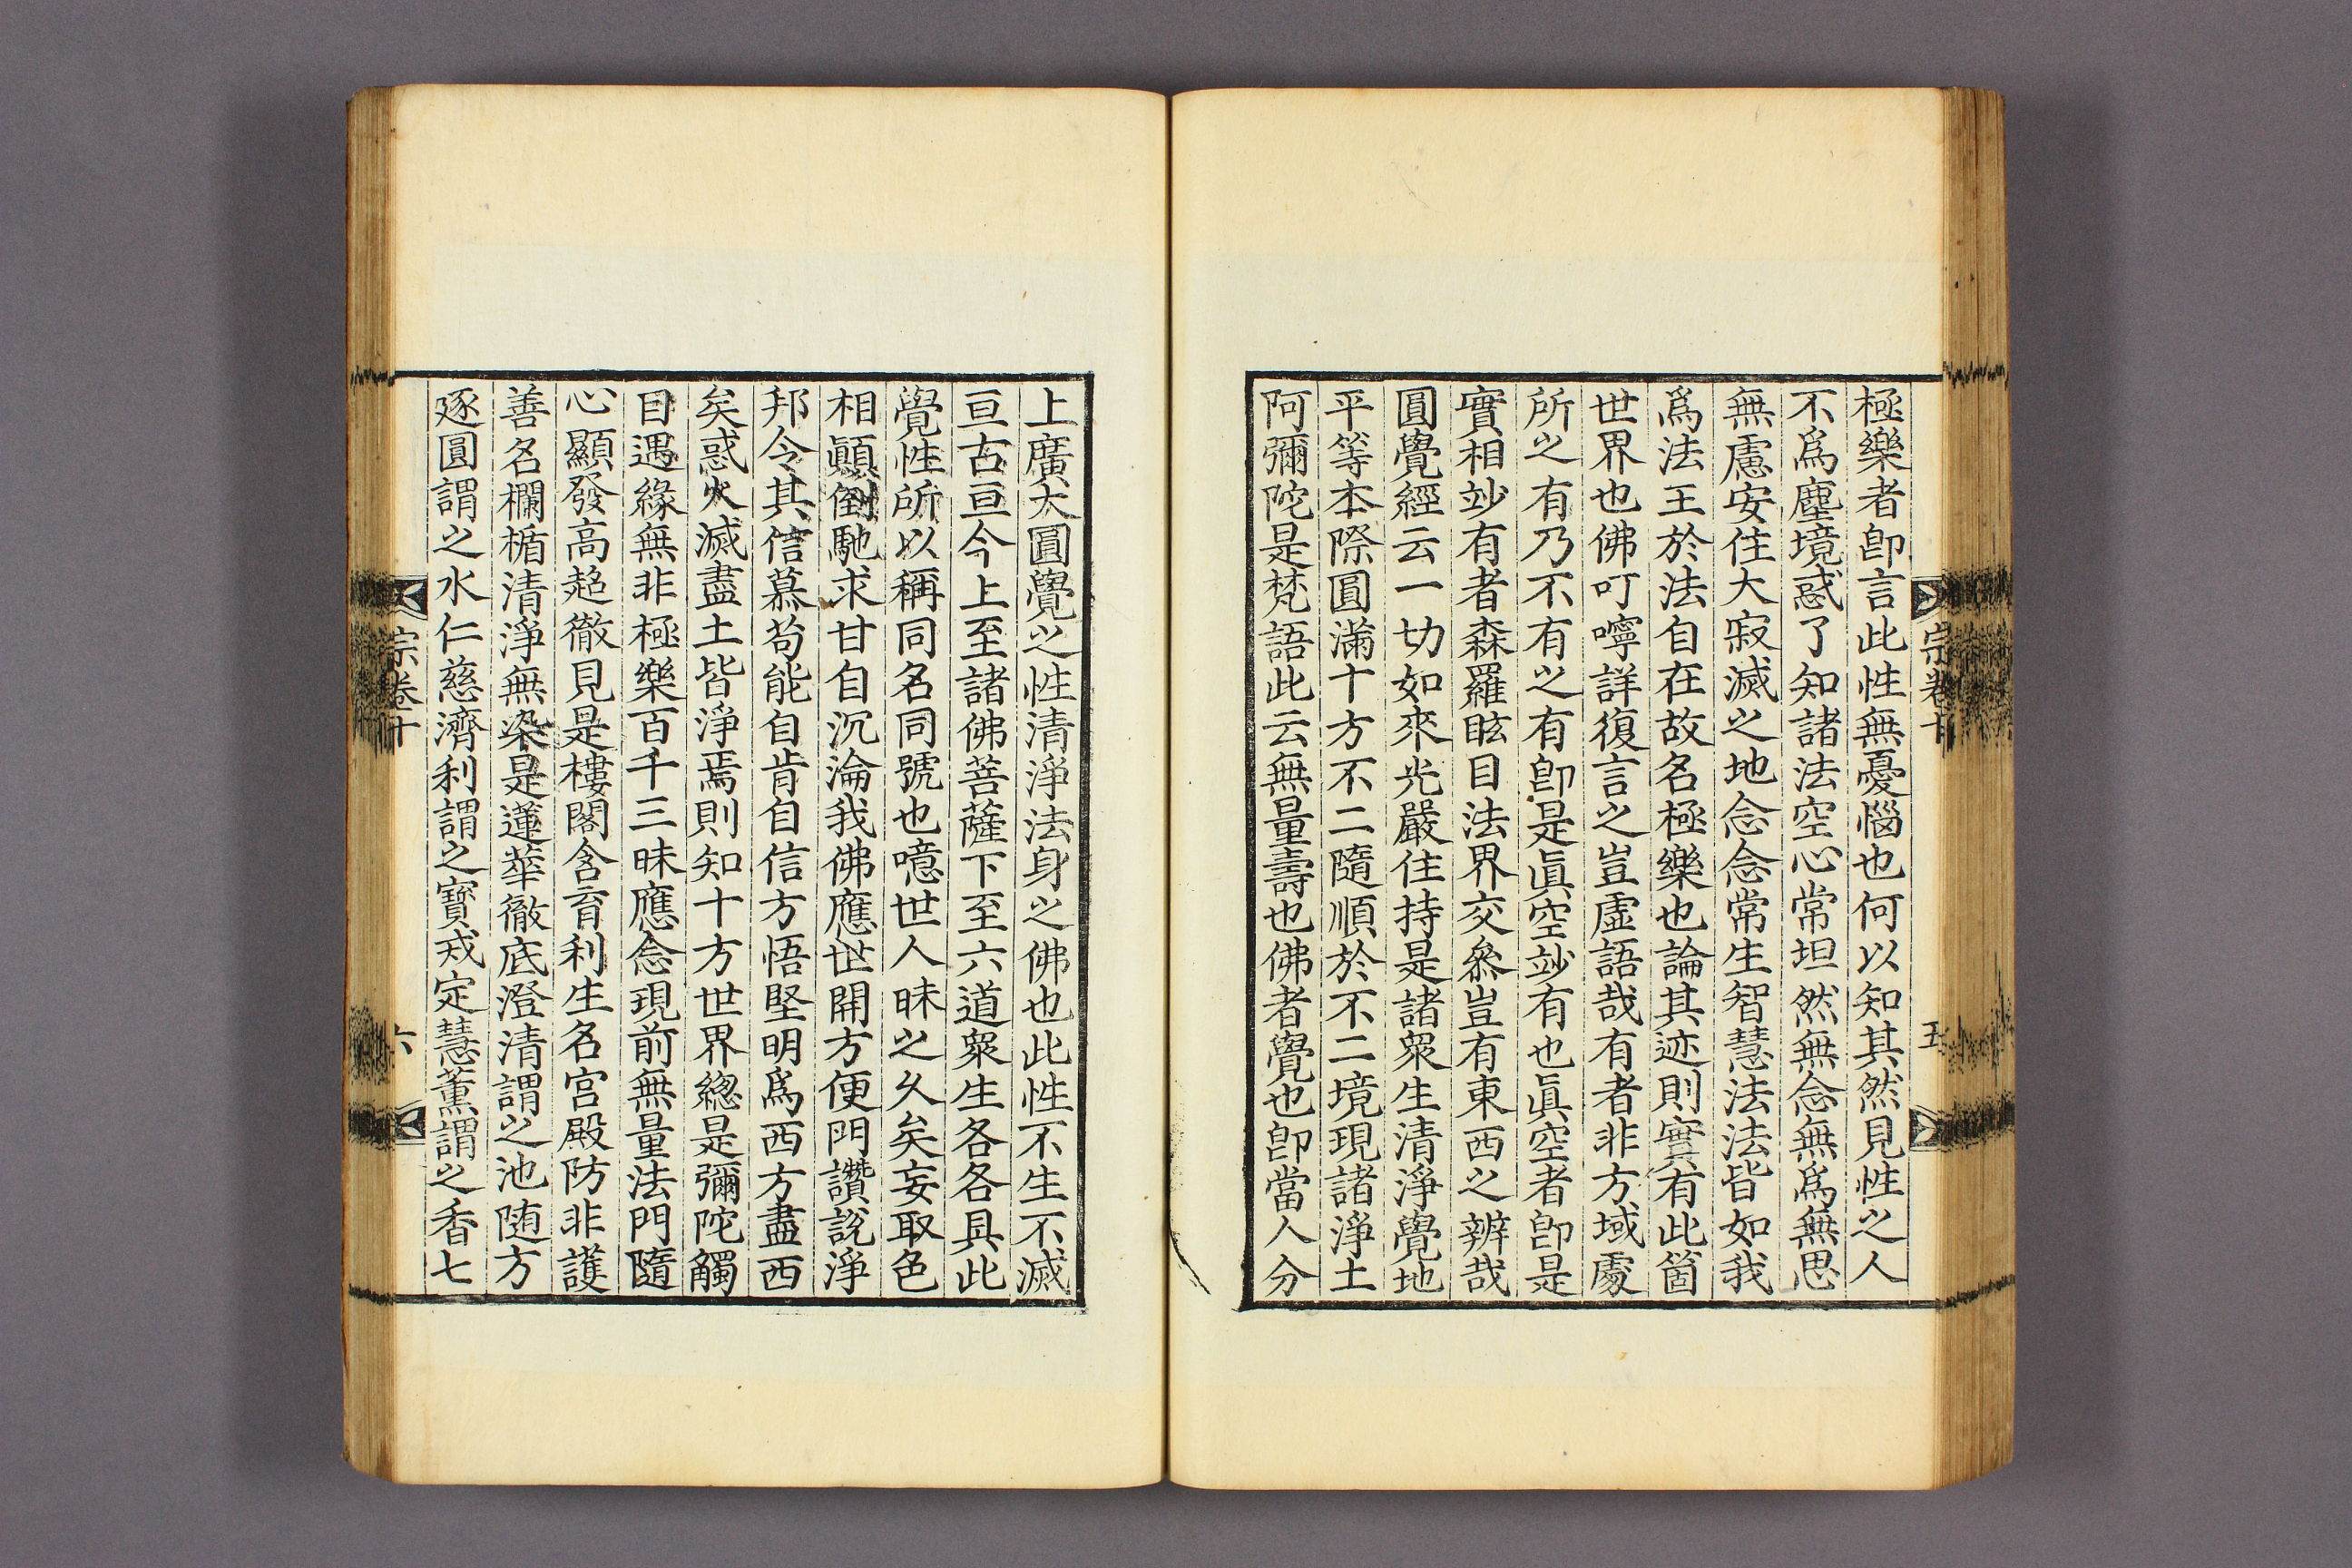 極樂者卽言此性無憂惱也何以知其然見性之人
不爲塵境惑了知諸法空心常坦然無念無爲無思
無慮安住大寂滅之地念念常生智慧法法皆如我
爲法王於法自在故名極樂也論其迹則實有此箇
世界也佛叮嚀詳復言之豈虛語哉有者非方域處
所之有乃不有之有卽是眞空妙有也眞空者卽是
實相妙有者森羅眩目法界交叅豈有東西之辨哉
圓覺經云一切如來光嚴住持是諸衆生清淨覺地
平等本際圓滿十方不二隨順於不二境現諸淨土
阿彌陀是梵語此云無量壽也佛者覺也卽當人分
宗卷十
五
上廣大圓覺之性清淨法身之佛也此性不生不滅
亘古亘今上至諸佛菩薩下至六道衆生各各具此
覺性所以稱同名同號也噫世人昧之久矣妄取色
相顚倒馳求甘自沉淪我佛應世開方便門讚說淨
邦令其信慕苟能自肯自信方悟堅明爲西方盡西
矣惑火滅盡土皆淨焉則知十方世界緫是彌陀觸
目遇緣無非極樂百千三昧應念現前無量法門隨
心顯發高超徹見是樓閣含育利生名宮殿防非護
善名欄楯清淨無染是蓮華徹底澄清謂之池随方
逐圓謂之水仁慈濟利謂之寳戒定慧薰謂之香七
宗卷十
六